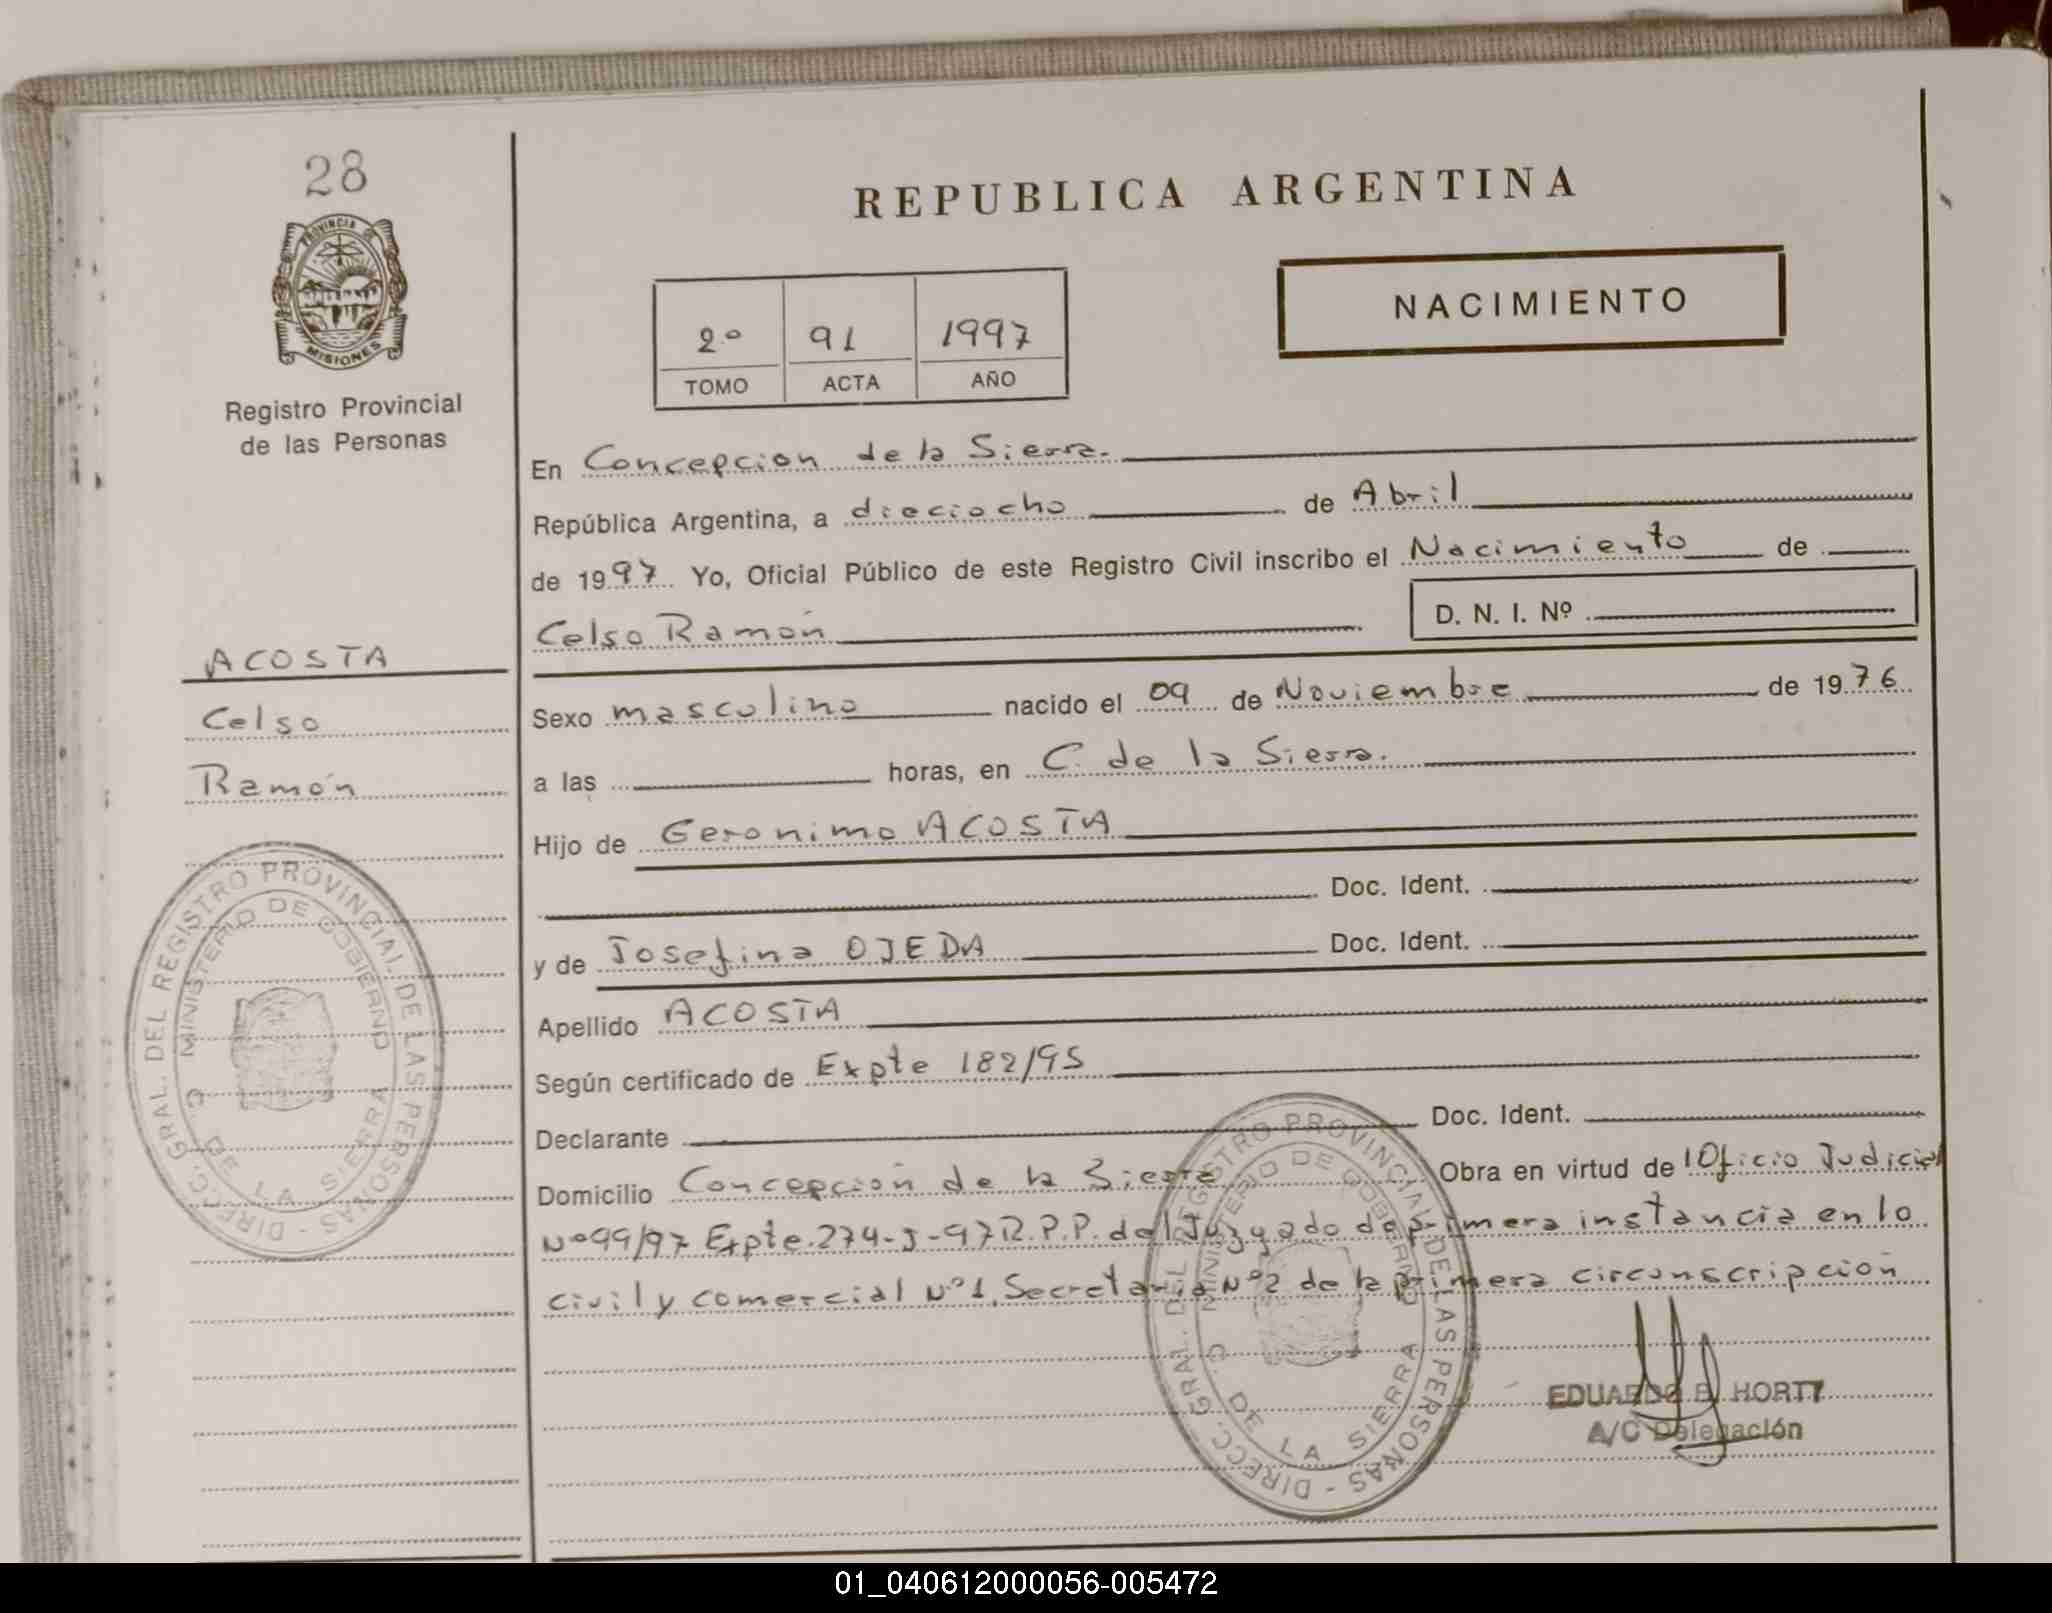 28
PROVINCIA DE
MISIONES
Registro Provincial
de las Personas
ACOSTA
Celso
Ramón
DIRECC. GRAL. DEL REGISTRO PROVINCIAL DE LAS PERSONAS -
MINISTERIO DE GOBIERNO
C. DE LA SIERRA
REPUBLICA ARGENTINA
2º 91 1997
TOMO ACTA AÑO
NACIMIENTO
En Concepcion de la Sierra.
República Argentina, a dieciocho de Abril
de 1997 Yo, Oficial Público de este Registro Civil inscribo el Nacimiento de
Celso Ramón
D. N. I. Nº
Sexo masculino nacido el 09 de Noviembre de 1976
a las horas, en C. de la Sierra.
Hijo de Geronimo ACOSTA
Doc. Ident.
y de Josefina OJEDA Doc. Ident.
Apellido ACOSTA
Según certificado de Expte 182/95
Declarante Doc. Ident.
Domicilio Concepción de la Sierra Obra en virtud de Oficio Judicial
Nº99/97 Expte.274-J-97R.P.P. del Juzgado de primera instancia en lo
civil y comercial Nº1, Secretaria Nº2 de la primera circunscripción
DIRECC. GRAL. DEL REGISTRO PROVINCIAL DE LAS PERSONAS -
MINISTERIO DE GOBIERNO
C. DE LA SIERRA
EDUARDO B. HORTT
A/C Delegación
01_040612000056-005472